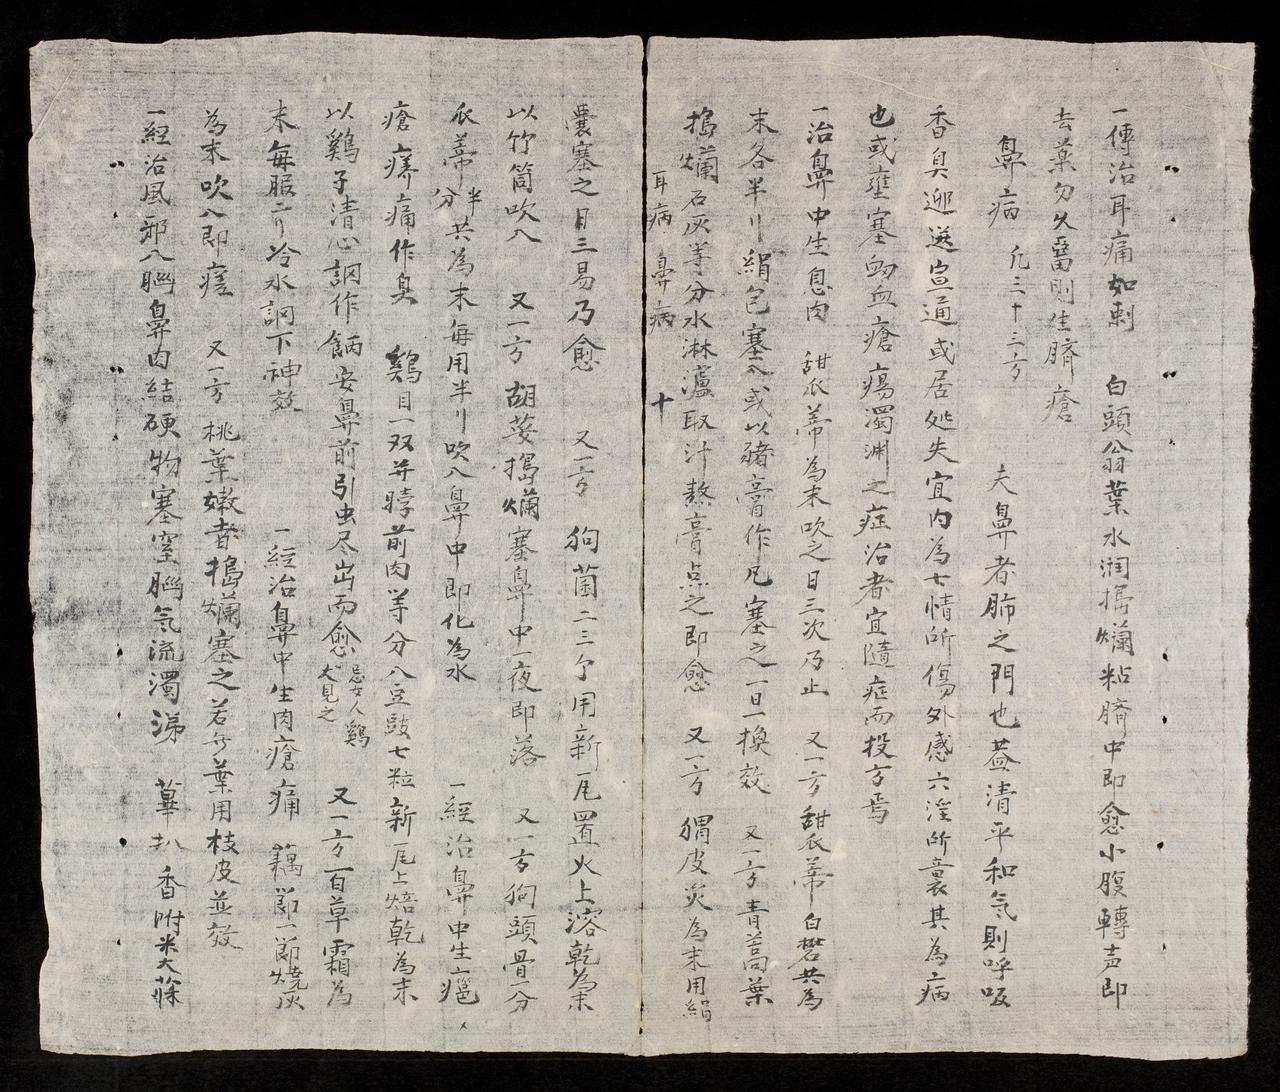 一傳治耳痛如刺 白頭翁葉水润搗爛粘臍中即愈小腹轉声即
去藥勿久畱則生臍瘡
鼻病 凢三十三方 夫鼻者肺之門也葢清平和氣則呼吸
香臭邇送宣通或居処失宜内為七情所傷外感六淫所襄其為病
也或壅塞衂血瘡瘍濁渊之症治者宜隨症而投方焉
一治鼻中生息肉 甜瓜蒂為末吹之日三次乃止 又一方甜瓜蒂白礬共為
末各半刂絹包塞入或以豬膏作凡塞之一日一換效 又一方青蒿葉
搗爛石灰等分水淋瀘取汁熬膏点之即愈 又一方 猬皮炭為末用絹
耳病 鼻病 十
囊塞之日三易乃愈 又一方 狗菌二三个用新瓦置火上溶乾為末
以竹筒吹入 又一方 胡荽搗爛塞鼻中一夜即落 又一方狗頭骨一分
瓜蒂半分共為末每用半刂吹入鼻中即化為水 一經治鼻中生瘜
瘡痒痛作臭 鷄目一双并脖前肉等分入豆豉七粒新瓦上焙乾為末
以鷄子清心調作餅安鼻前引虫尽出而愈忌女人鷄犬見之 又一方百草霜為
末每服二刂冷水調下神效 一經治鼻中生肉瘡痛 藕節一節燒灰
為末吹入即瘥 又一方 桃葉嫩者搗爛塞之若无葉用枝皮並效
一經治風邪入腦鼻肉結硬物塞窒腦氣流濁涕 蓽扒 香附 大蒜